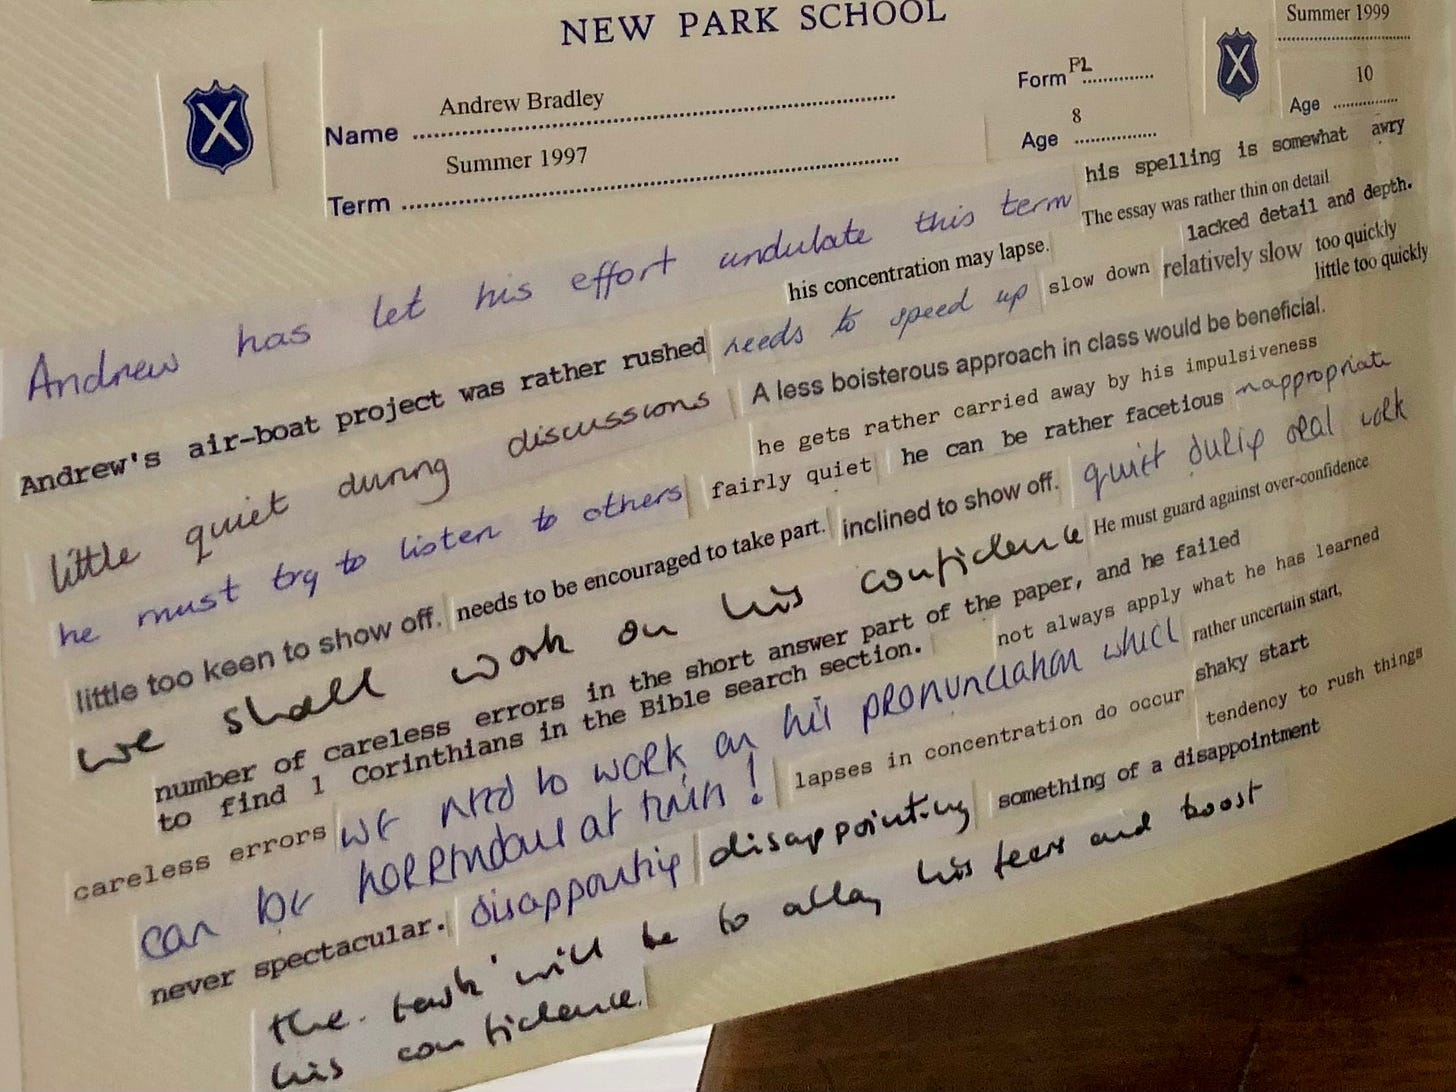 NEW PARK SCHOOL
Summer 1999
Name Andrew Bradley
Form PL
Age 10
Term Summer 1997
Age 8
his spelling is somewhat awry
Andrew has let his effort undulate this term
The essay was rather thin on detail
lacked detail and depth.
his concentration may lapse.
Andrew's air-boat project was rather rushed
needs to speed up
slow down
relatively slow
too quickly
little too quickly
little quiet during discussions
A less boisterous approach in class would be beneficial.
he gets rather carried away by his impulsiveness
he must try to listen to others
fairly quiet
he can be rather facetious
inappropriate
little too keen to show off.
needs to be encouraged to take part.
inclined to show off.
quiet during oral work
we shall work on his confidence
He must guard against over-confidence
number of careless errors in the short answer part of the paper, and he failed
to find 1 Corinthians in the Bible search section.
not always apply what he has learned
careless errors
we need to work on his pronunciation which
can be horrendous at times!
rather uncertain start,
lapses in concentration do occur
shaky start
tendency to rush things
never spectacular.
disappointing
disappointing
something of a disappointment
the task will be to allay his fears and boost
his confidence.